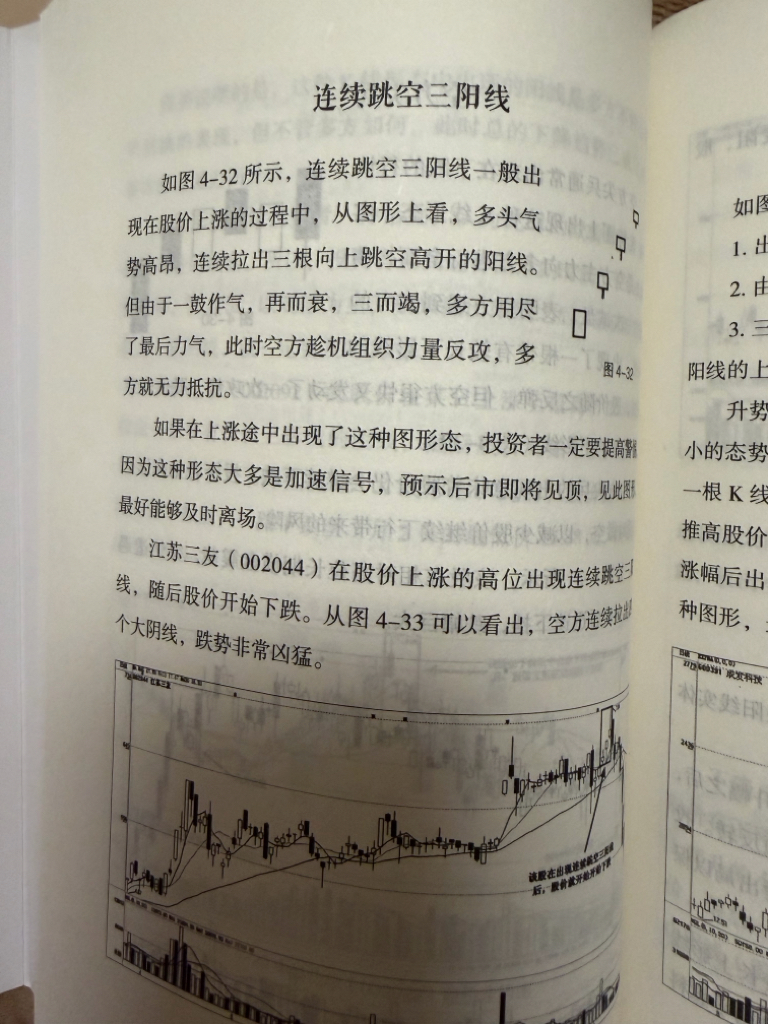 连续跳空三阳线
如图4-32所示，连续跳空三阳线一般出
现在股价上涨的过程中，从图形上看，多头气
势高昂，连续拉出三根向上跳空高开的阳线。
但由于一鼓作气，再而衰，三而竭，多方用尽
了最后力气，此时空方趁机组织力量反攻，多
方就无力抵抗。
图4-32
如果在上涨途中出现了这种图形态，投资者一定要提高警
因为这种形态大多是加速信号，预示后市即将见顶，见此图
最好能够及时离场。
江苏三友（002044）在股价上涨的高位出现连续跳空三
线，随后股价开始下跌。从图4-33可以看出，空方连续拉出
个大阴线，跌势非常凶猛。
该股在出现连续跳空三阳线
后，股价就开始开始下跌
如图
1. 出
2. 由
3. 三
阳线的上
升势
小的态势
一根K线
推高股价
涨幅后出
种图形，